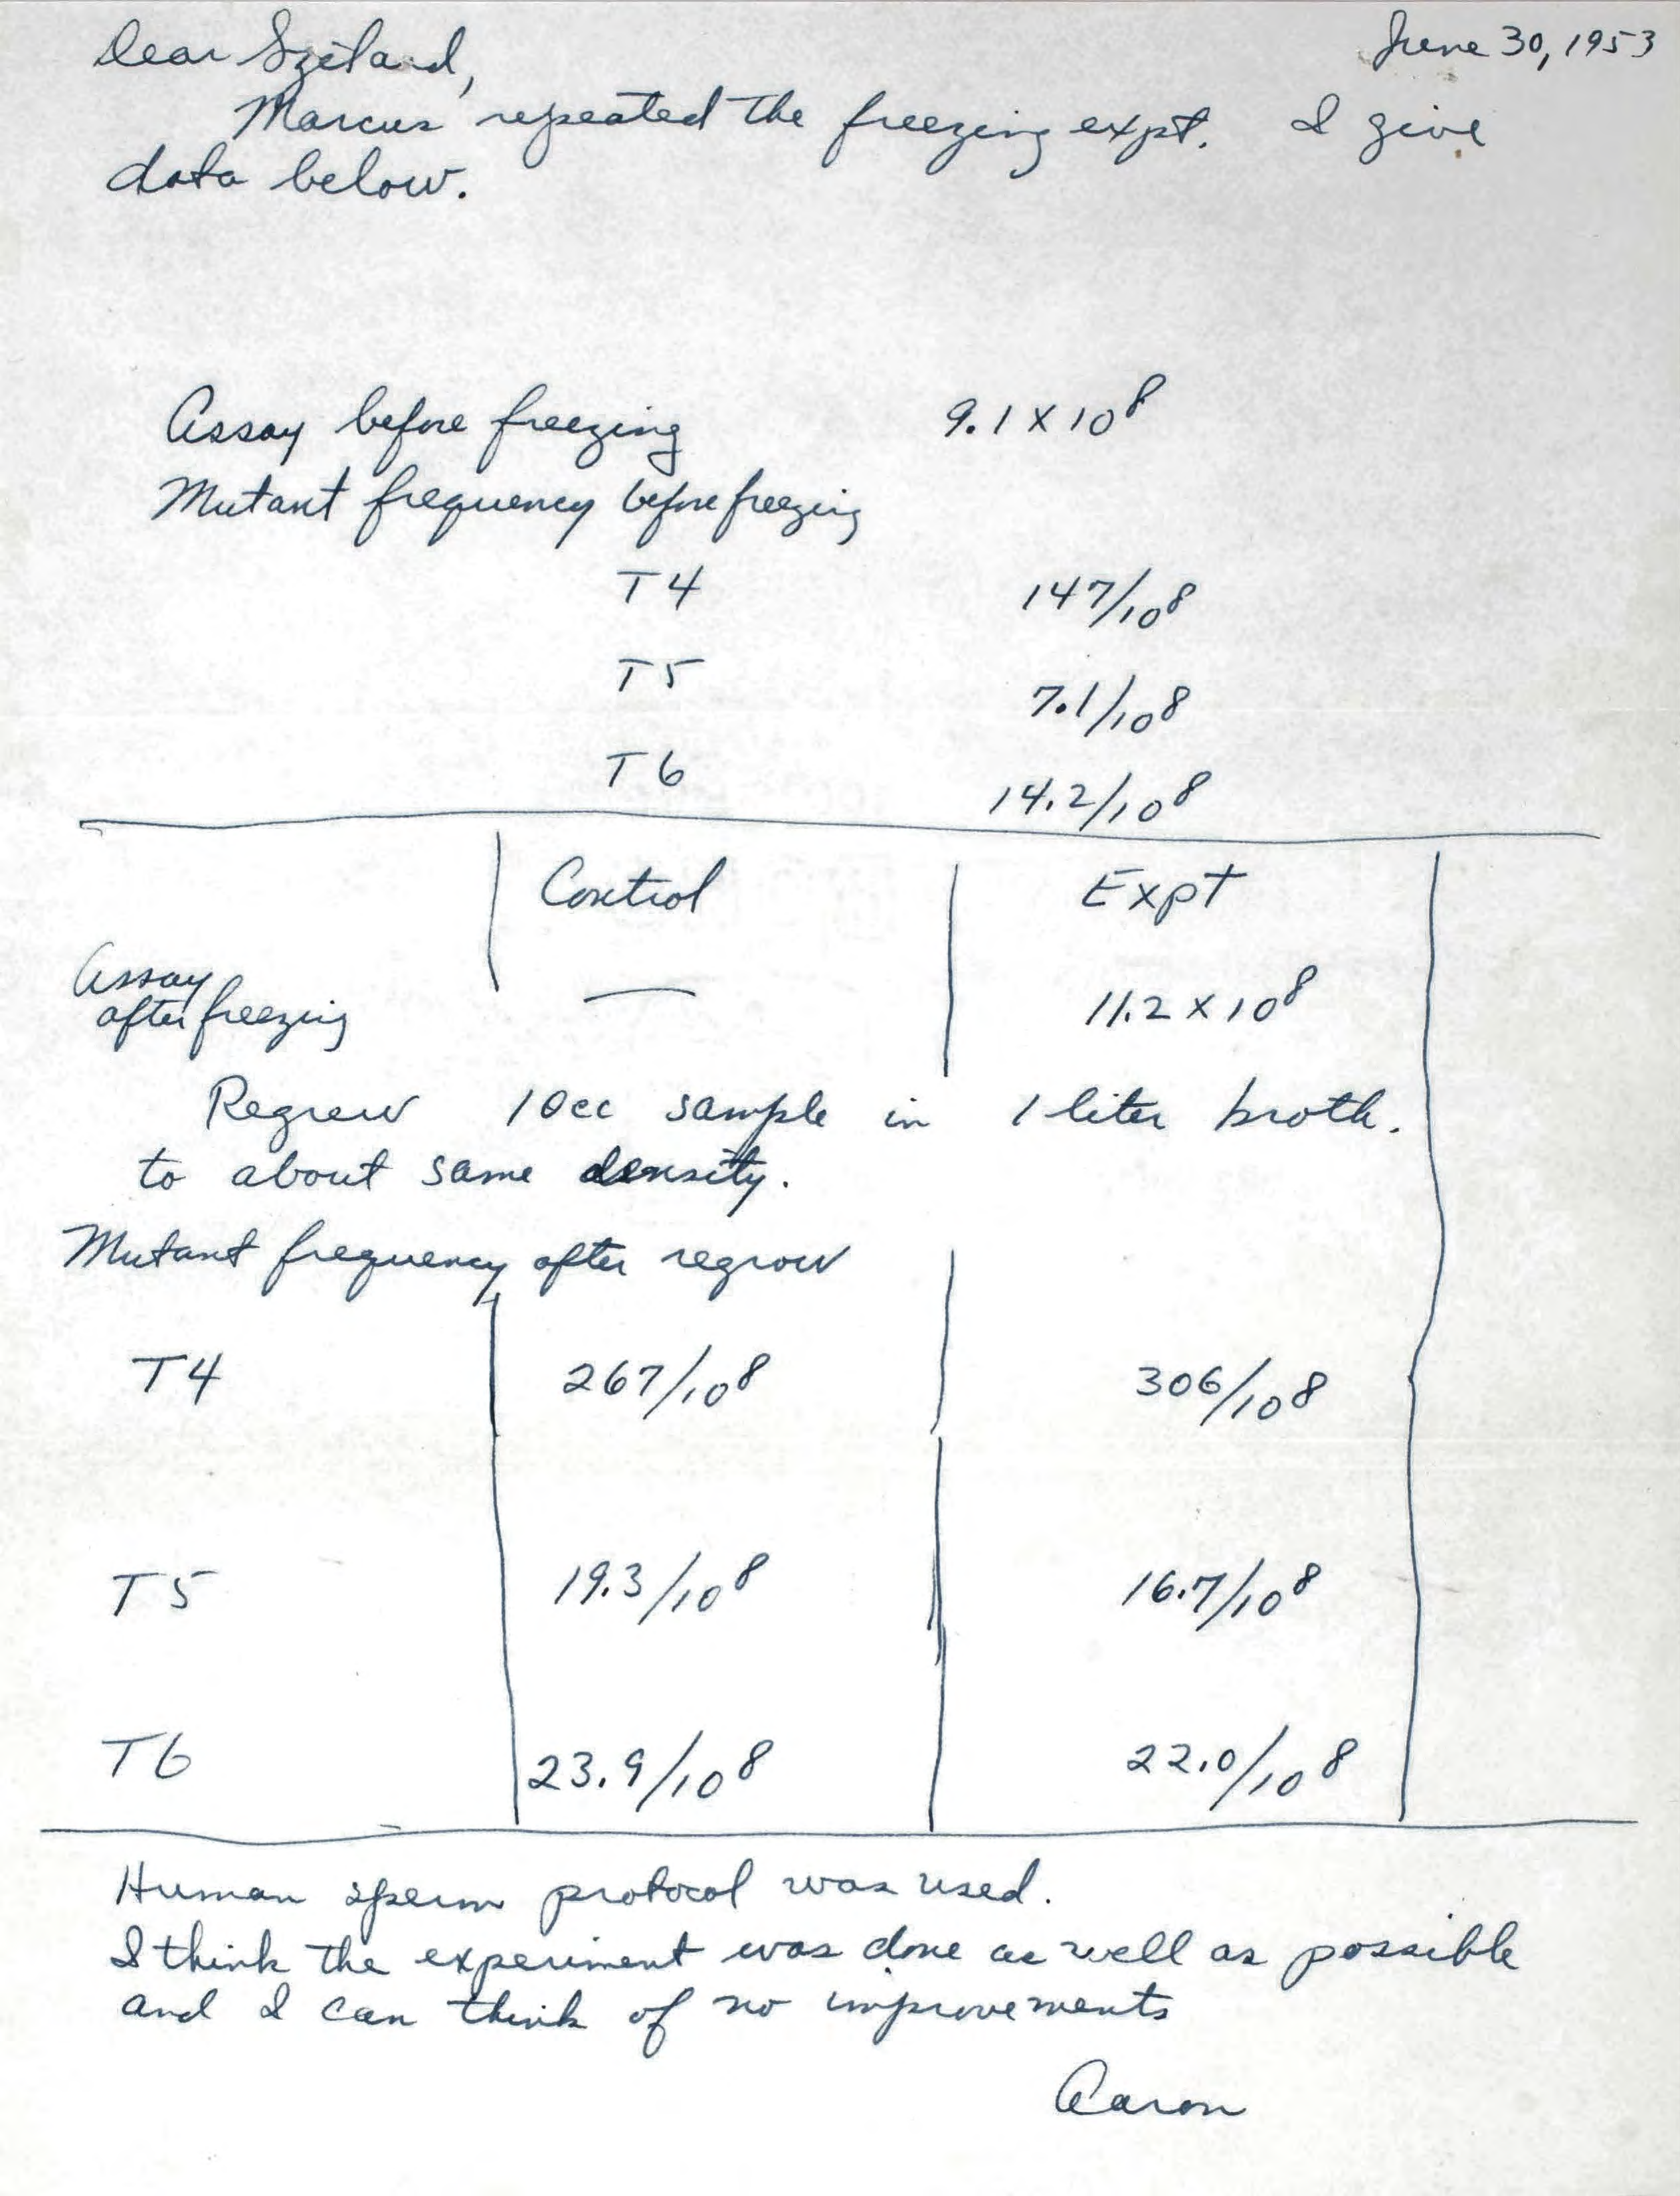 June 30, 1953
Dear Szilard,
Marcus repeated the freezing expt. I give
data below.
Assay before freezing 9.1 x 10⁸
Mutant frequency before freezing
T4 147/10⁸
T5 7.1/10⁸
T6 14.2/10⁸
Control Expt
Assay
after freezing — 11.2 x 10⁸
Regrew 10cc sample in 1 liter broth.
to about same density.
Mutant frequency after regrow
T4 267/10⁸ 306/10⁸
T5 19.3/10⁸ 16.7/10⁸
T6 23.9/10⁸ 22.0/10⁸
Human sperm protocol was used.
I think the experiment was done as well as possible
and I can think of no improvements
Aaron